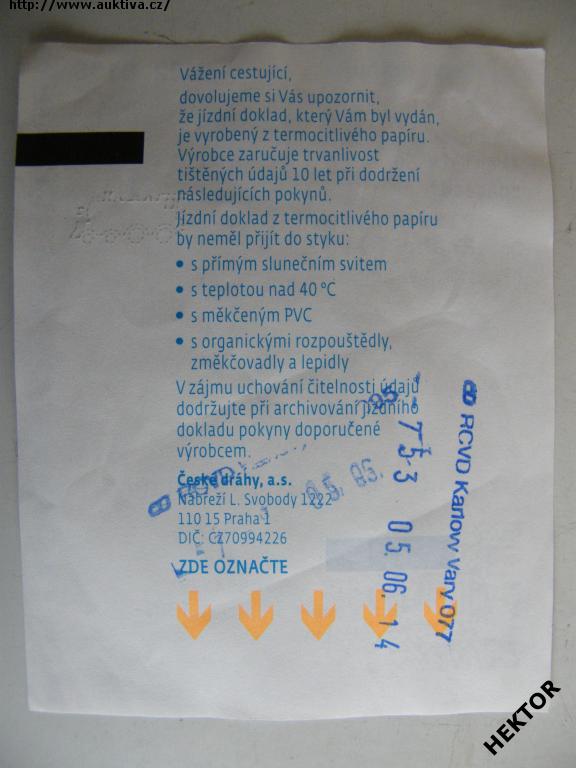 http://www.auktiva.cz/
Vážení cestující,
dovolujeme si Vás upozornit,
že jízdní doklad, který Vám byl vydán,
je vyrobený z termocitlivého papíru.
Výrobce zaručuje trvanlivost
tištěných údajů 10 let při dodržení
následujících pokynů.
Jízdní doklad z termocitlivého papíru
by neměl přijít do styku:
• s přímým slunečním svitem
• s teplotou nad 40 °C
• s měkčeným PVC
• s organickými rozpouštědly,
změkčovadly a lepidly
V zájmu uchování čitelnosti údajů
dodržujte při archivování jízdního
dokladu pokyny doporučené
výrobcem.
České dráhy, a.s.
Nábřeží L. Svobody 1222
110 15 Praha 1
DIČ: CZ70994226
ZDE OZNAČTE
RCVD Karlovy Vary 077
753 05.06.14
HEKTOR